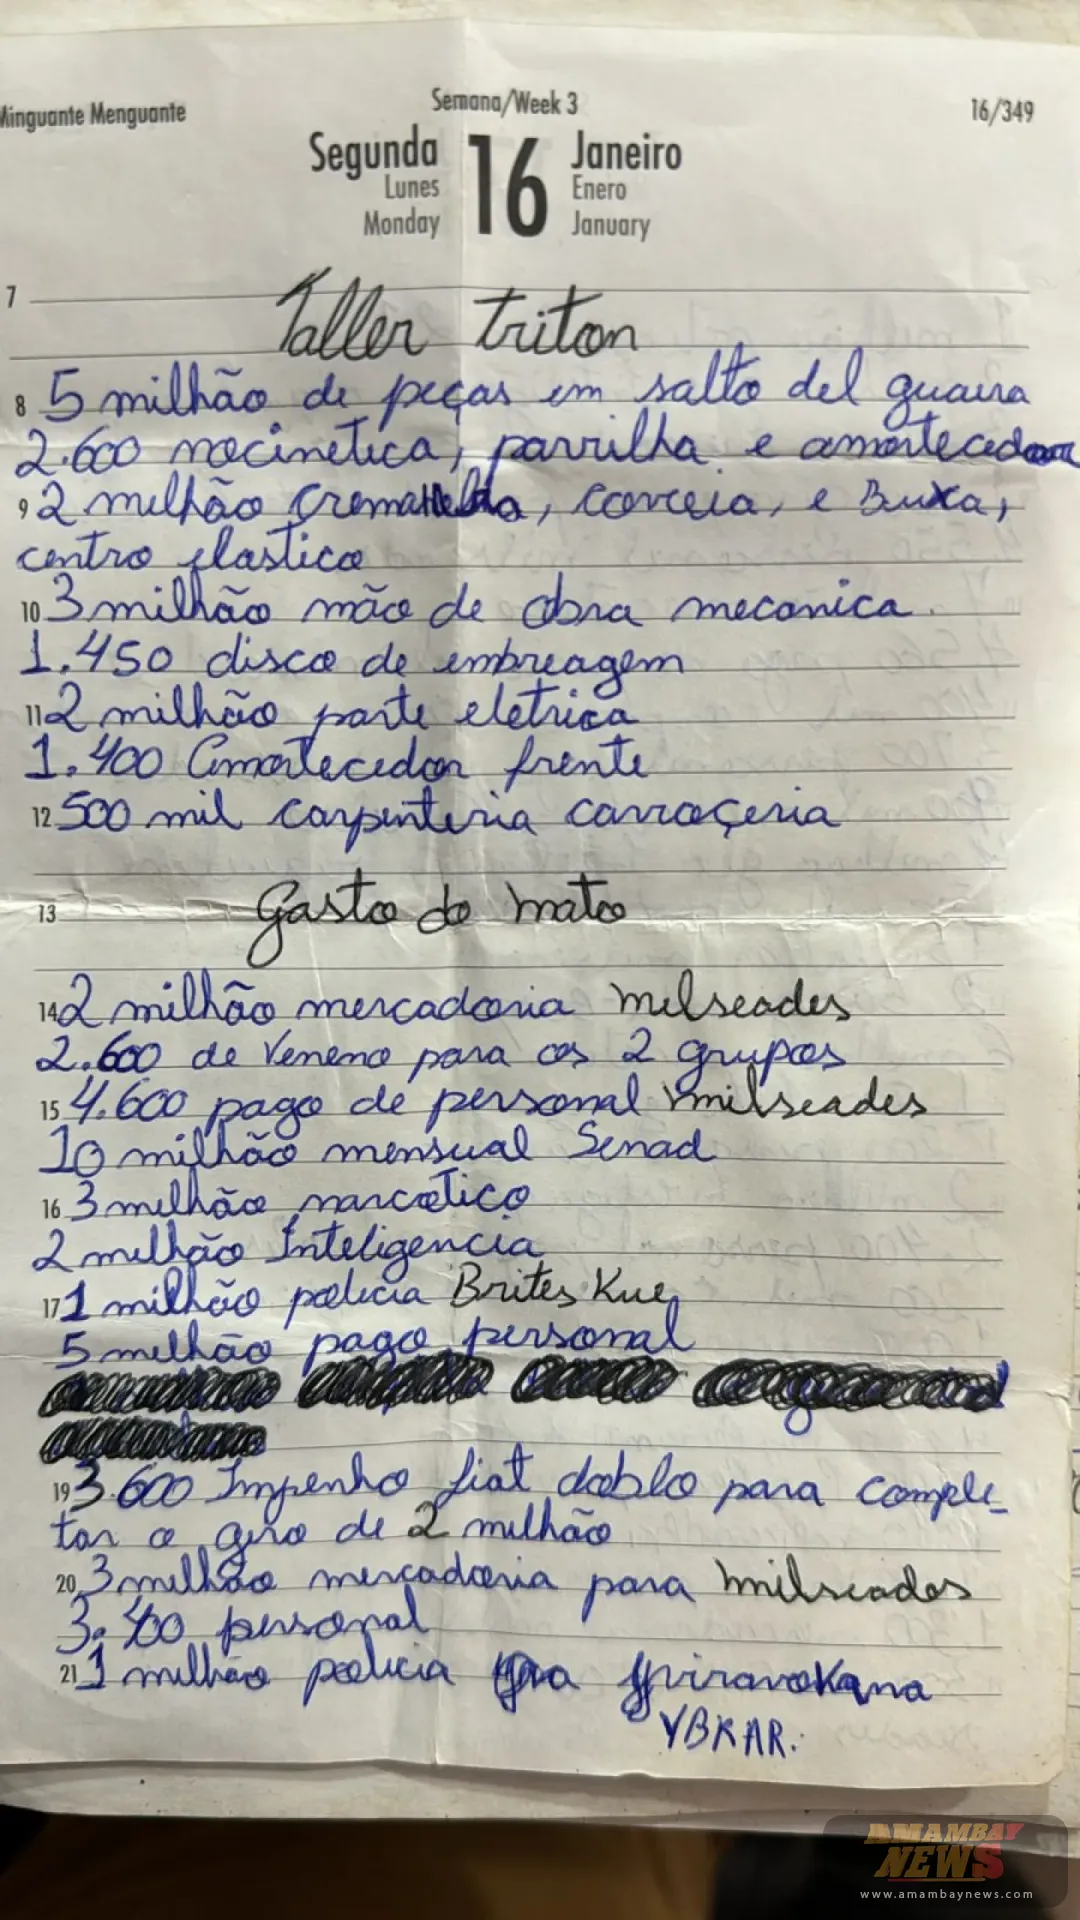 Minguante Menguante
Semana/Week 3
16/349
Segunda 16 Janeiro
Lunes Enero
Monday January
7
Taller triton
8 5 milhão de peças em salto del guaira
2.600 nocinetica, parrilha e amortecedor
9 2 milhão Cremalhelha, correia, e Buxa,
centro elastico
10 3 milhão mão de obra mecanica.
1.450 disco de embreagem
11 2 milhão parte eletrica
1.400 Amortecedor frente
12 500 mil carpenteria carroçeria
13 Gasto do mato
14 2 milhão mercadoria milseades
2.600 de Veneno para os 2 grupos
15 4.600 pago de personal milseades
10 milhão mensual Senad
16 3 milhão narcotico
2 milhão Inteligencia
17 1 milhão policia Brites Kue
5 milhão pago personal
19 3.600 Impenho fiat doblo para comple-
tar o giro de 2 milhão
20 3 milhão mercadoria para milseades
3.400 personal
21 1 milhão policia
YBKAR.
AMAMBAY
NEWS
www.amambaynews.com